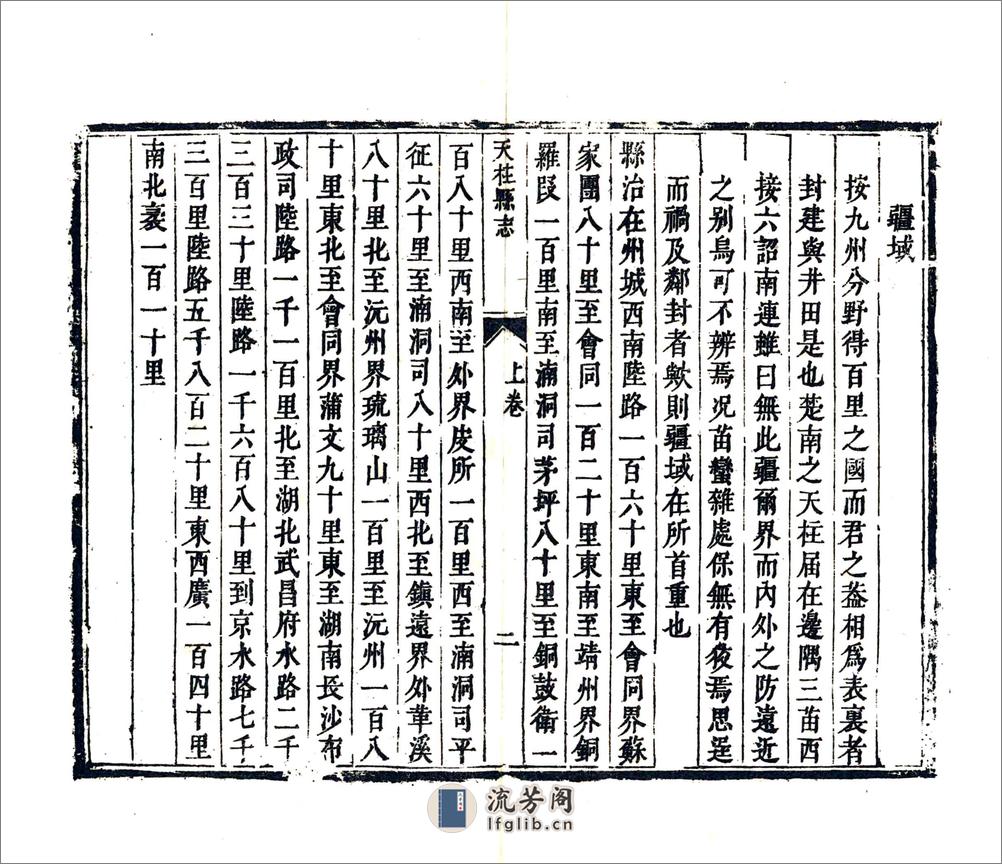 疆域
按九州分野得百里之國而君之盖相爲表裏者
封建與井田是也楚南之天柱届在邊隅三苗西
接六詔南連雖曰無此疆爾界而內外之防遠近
之别烏可不辨焉况苗蠻雜處保無有狡焉思逞
而禍及鄰封者歟則疆域在所首重也
縣治在州城西南陸路一百六十里東至會同界蘇
家團八十里至會同一百二十里東南至靖州界銅
羅段一百里南至湳洞司茅坪八十里至銅鼓衛一
天柱縣志
上卷
二
百八十里西南至外界皮所一百里西至湳洞司平
征六十里至湳洞司八十里西北至鎮遠界外革溪
八十里北至沅州界琉璃山一百里至沅州一百八
十里東北至會同界蒲文九十里東至湖南長沙布
政司陸路一千一百里北至湖北武昌府水路二千
三百三十里陸路一千六百八十里到京水路七千
三百里陸路五千八百二十里東西廣一百四十里
南北袤一百一十里
流芳阁
lfglib.cn